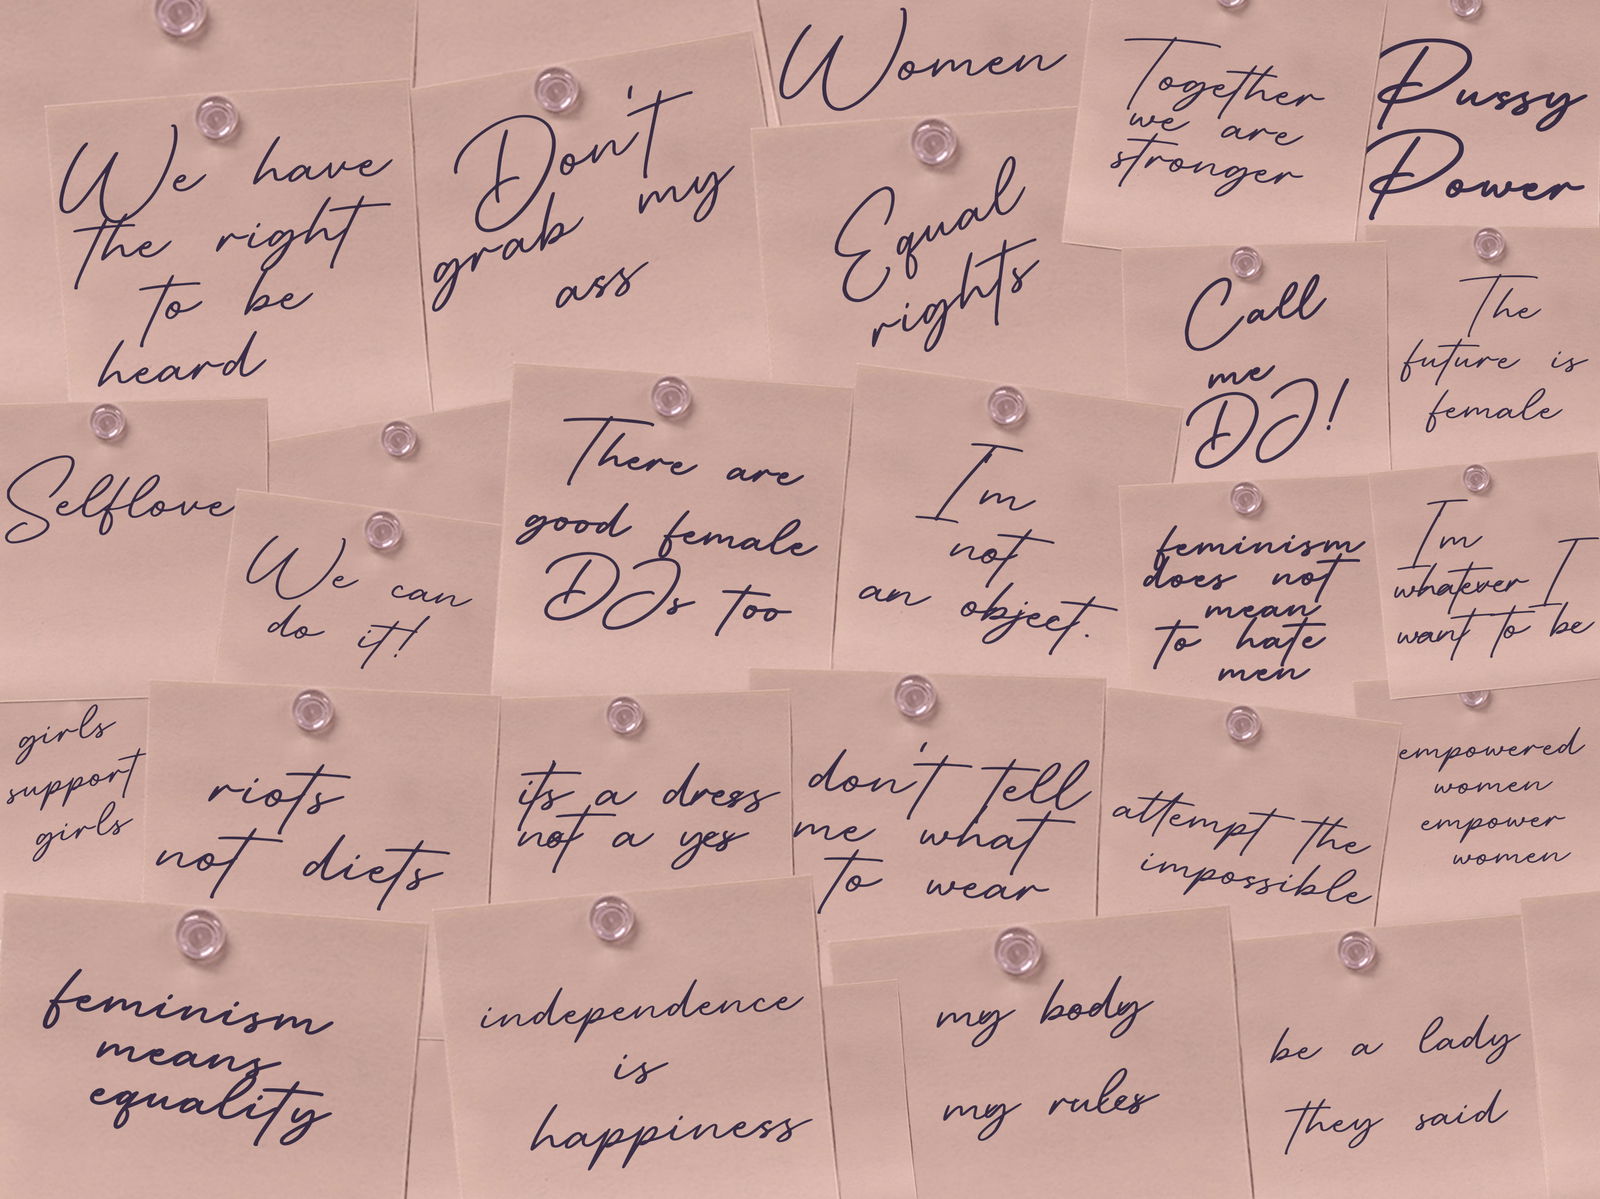 Women
Together
we are
stronger
Pussy
Power
We have
the right
to be
heard
Don't
grab my
ass
Equal
rights
Call
me
DJ!
The
future is
female
Selflove
We can
do it!
There are
good female
DJs too
I'm
not
an object.
feminism
does not
mean
to hate
men
I'm
whatever I
want to be
girls
support
girls
riots
not diets
it's a dress
not a yes
don't tell
me what
to wear
attempt the
impossible
empowered
women
empower
women
feminism
means
equality
independence
is
happiness
my body
my rules
be a lady
they said